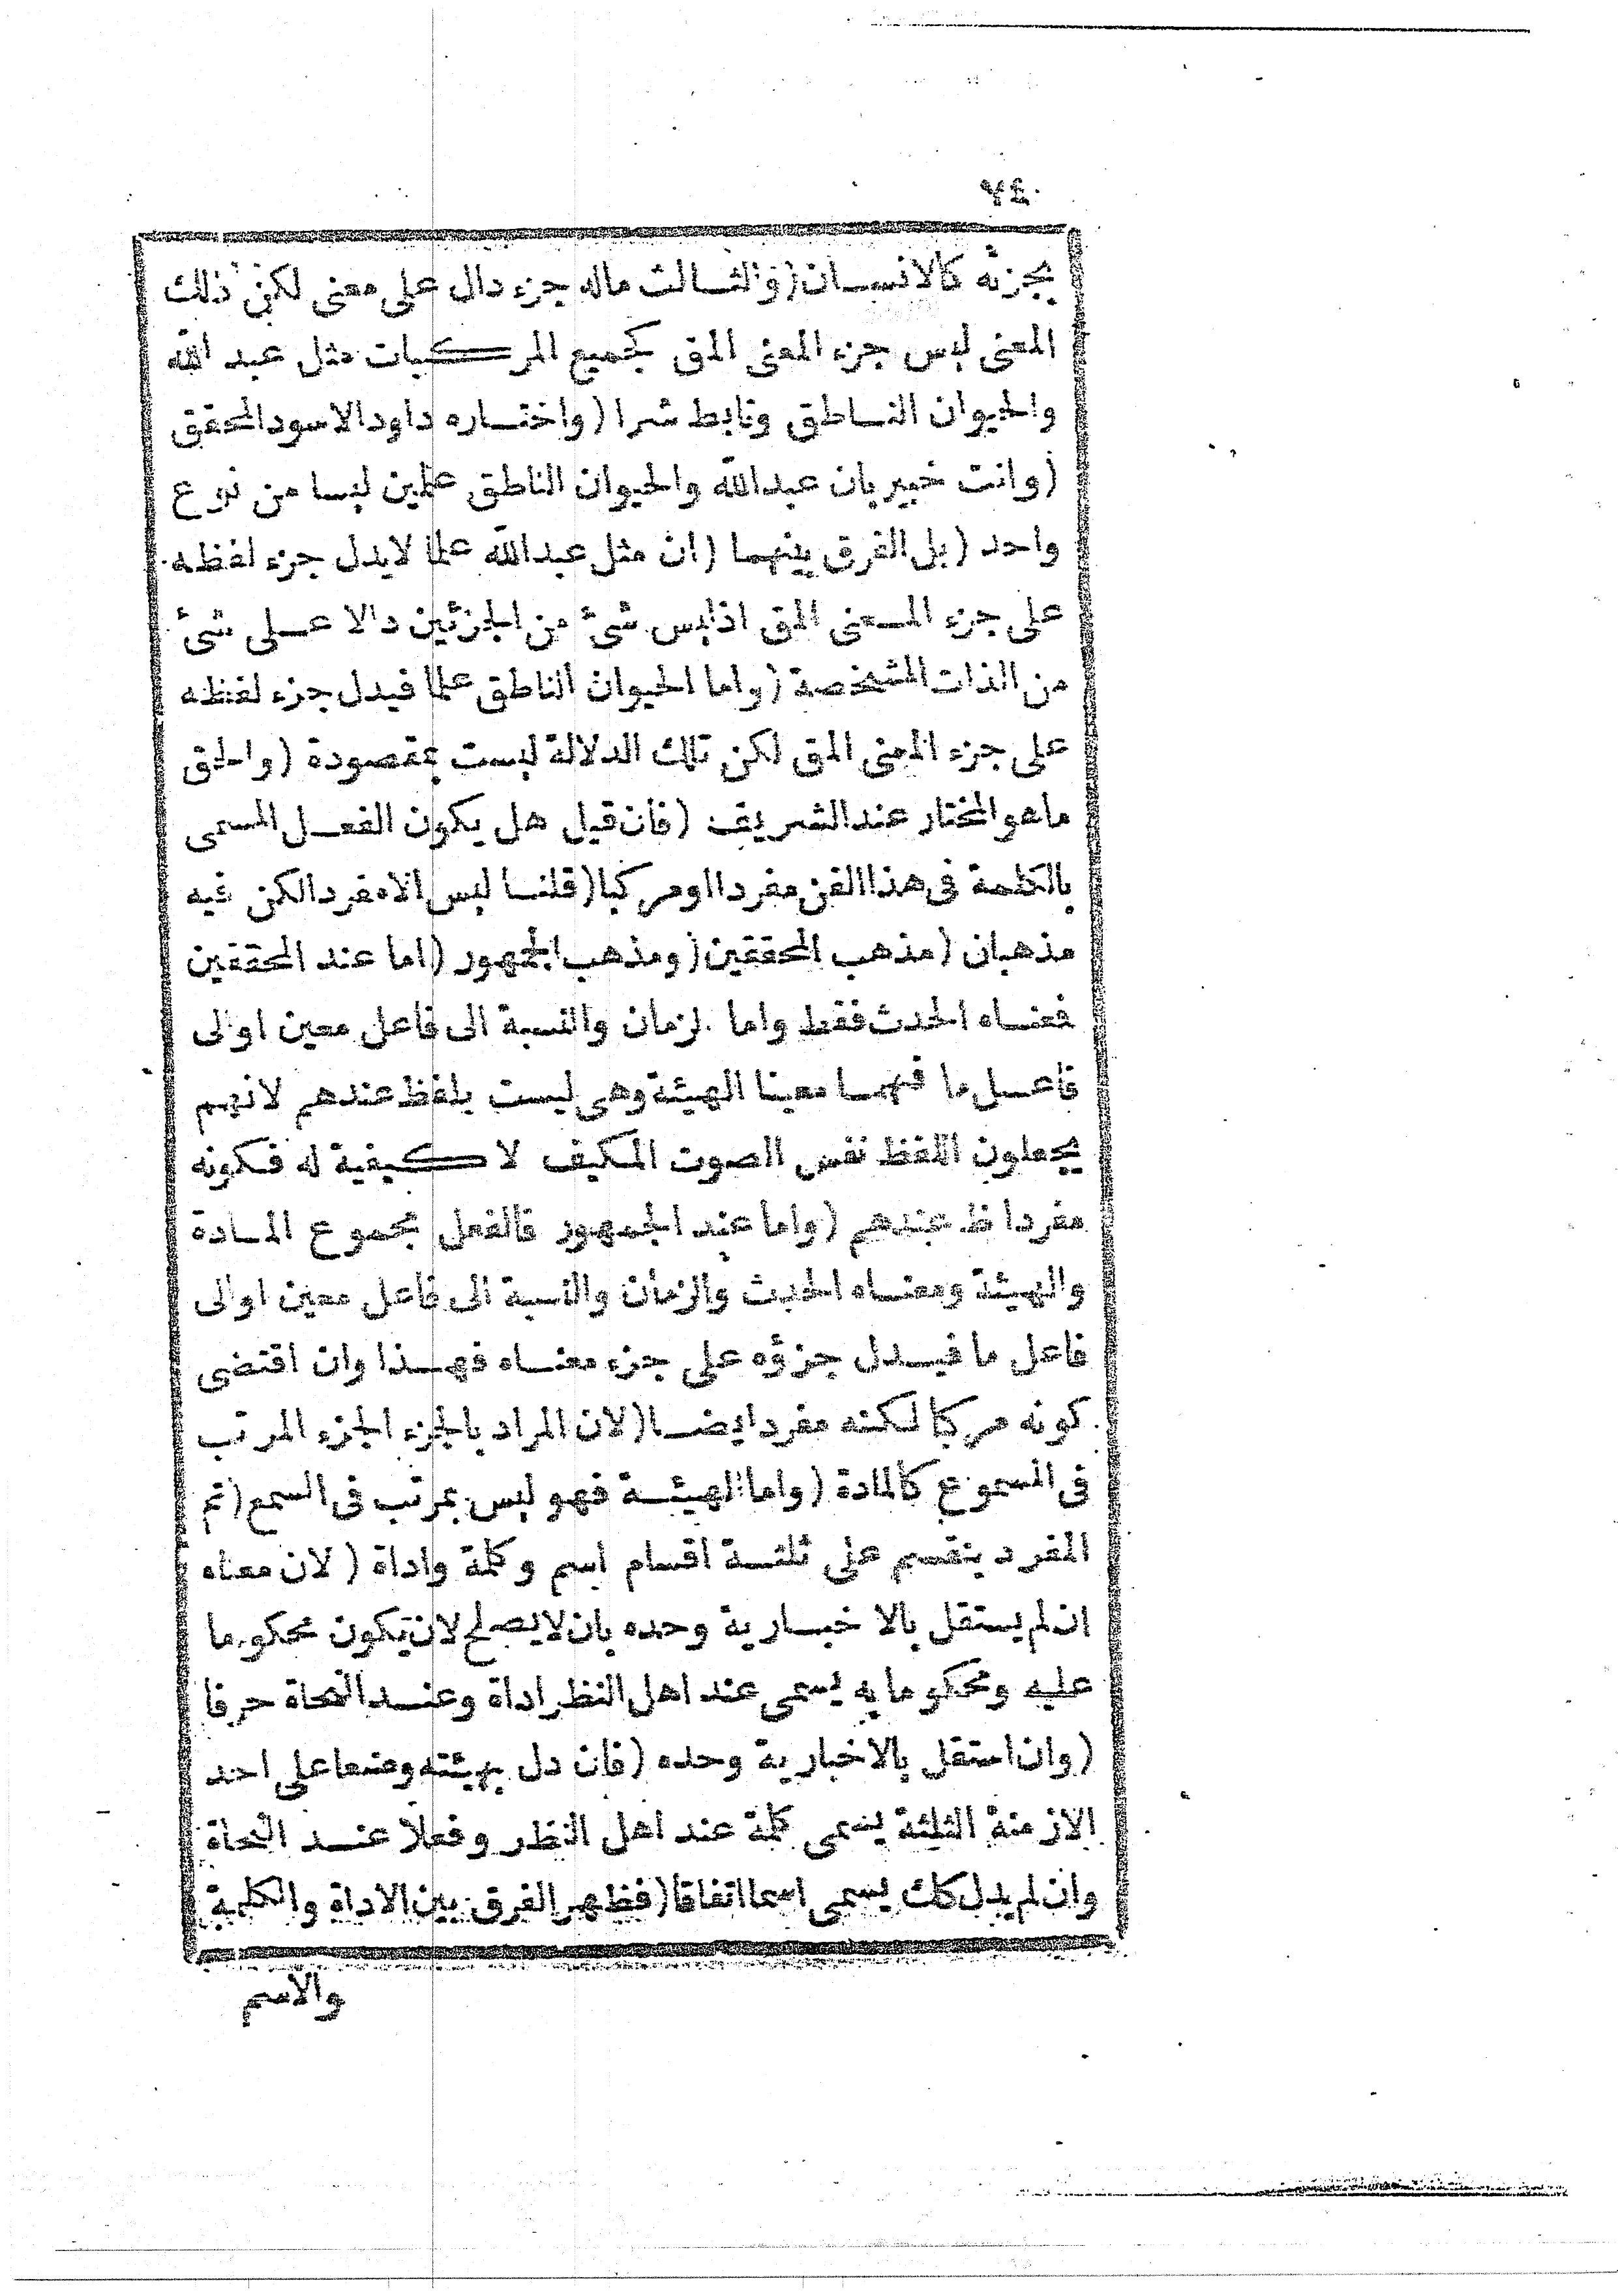 ٧٤
بجزئه كالانسان (والثالث ماله جزء دال على معنى لكن ذلك
المعنى ليس جزء المعنى المق كجميع المركبات مثل عبد الله
والحيوان الناطق وتابط شرا (واختاره داود الاسود المحقق
(وانت خبير بان عبدالله والحيوان الناطق علمين ليسا من نوع
واحد (بل الفرق بينهما (ان مثل عبدالله علما لا يدل جزء لفظه
على جزء المعنى المق اذ ليس شئ من الجزئين دالا على شئ
من الذات المشخصة (واما الحيوان الناطق علما فيدل جزء لفظه
على جزء المعنى المق لكن تلك الدلالة ليست بمقصودة (والحق
ما هو المختار عند الشريف (فان قيل هل يكون الفعل المسمى
بالكلمة فى هذا الفن مفردا او مركبا (قلنا ليس الا مفردا لكن فيه
مذهبان (مذهب المحققين (ومذهب الجمهور (اما عند المحققين
فمعناه الحدث فقط واما لزمان والنسبة الى فاعل معين او الى
فاعل ما فهما معينا الهيئة وهى ليست بلفظ عندهم لانهم
يجعلون اللفظ نفس الصوت المكيف لا كيفية له فكونه
مفردا ظ عندهم (واما عند الجمهور فالفعل مجموع المادة
والهيئة ومعناه الحدث والزمان والنسبة الى فاعل معين او الى
فاعل ما فيدل جزؤه على جزء معناه فهذا وان اقتضى
كونه مركبا لكنه مفرد ايضا (لان المراد بالجزء الجزء المرتب
فى المسموع كالمادة (واما الهيئة فهو ليس بمرتب فى السمع (ثم
المفرد ينقسم على ثلثة اقسام اسم وكلمة واداة (لان معناه
ان لم يستقل بالاخبارية وحده بان لا يصلح لان يكون محكوما
عليه ومحكوما به يسمى عند اهل النظر اداة وعند النحاة حرفا
(وان استقل بالاخبارية وحده (فان دل بهيئته وضعا على احد
الازمنة الثلثة يسمى كلمة عند اهل النظر وفعلا عند النحاة
وان لم يدل كك يسمى اسما اتفاقا (فظهر الفرق بين الاداة والكلمة
والاسم